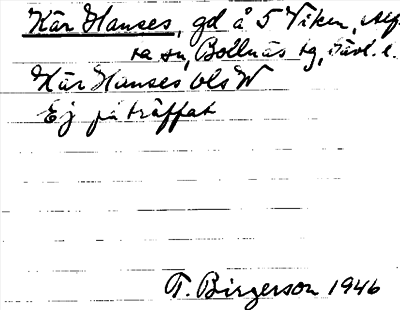 Kär Hanses, gd å 5 Viken, Alf-
ta sn, Bollnäs tg, Gävl. l.
Kär Hanses Ols W
Ej påträffat
T. Birgerson 1946